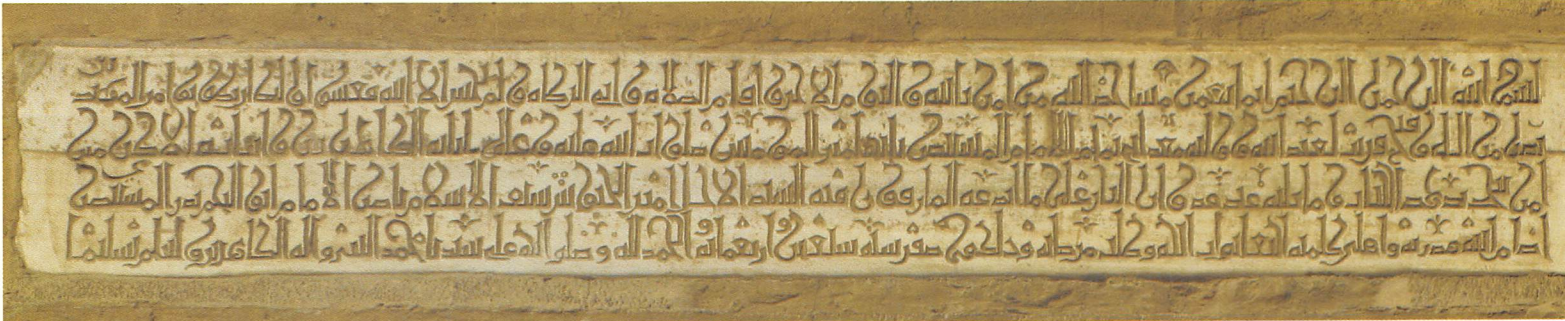 بسم الله الرحمن الرحيم انما يعمر مساجد الله من امن بالله واليوم الاخر واقام الصلاة واتى الزكاة ولم يخش الا الله فعسى اولئك ان يكونوا من المهتدين
نصر من الله وفتح قريب لعبد الله ووليه معد ابي تميم الامام المستنصر بالله امير المؤمنين صلوات الله عليه وعلى ابائه الطاهرين وابنائه الاكرمين
امر بتجديد هذا الباب وما يليه عند عدوان النار على ما ابدعه المارقون فيه السيد الاجل امير الجيوش سيف الاسلام ناصر الامام ابو النجم بدر المستنصري
ادام الله قدرته واعلى كلمته ابتغاء ثواب الله وطلب مرضاته وذلك في صفر سنة سبعين واربعمائة الحمد لله وصلواته على سيدنا محمد النبي واله الطاهرين وسلم تسليما